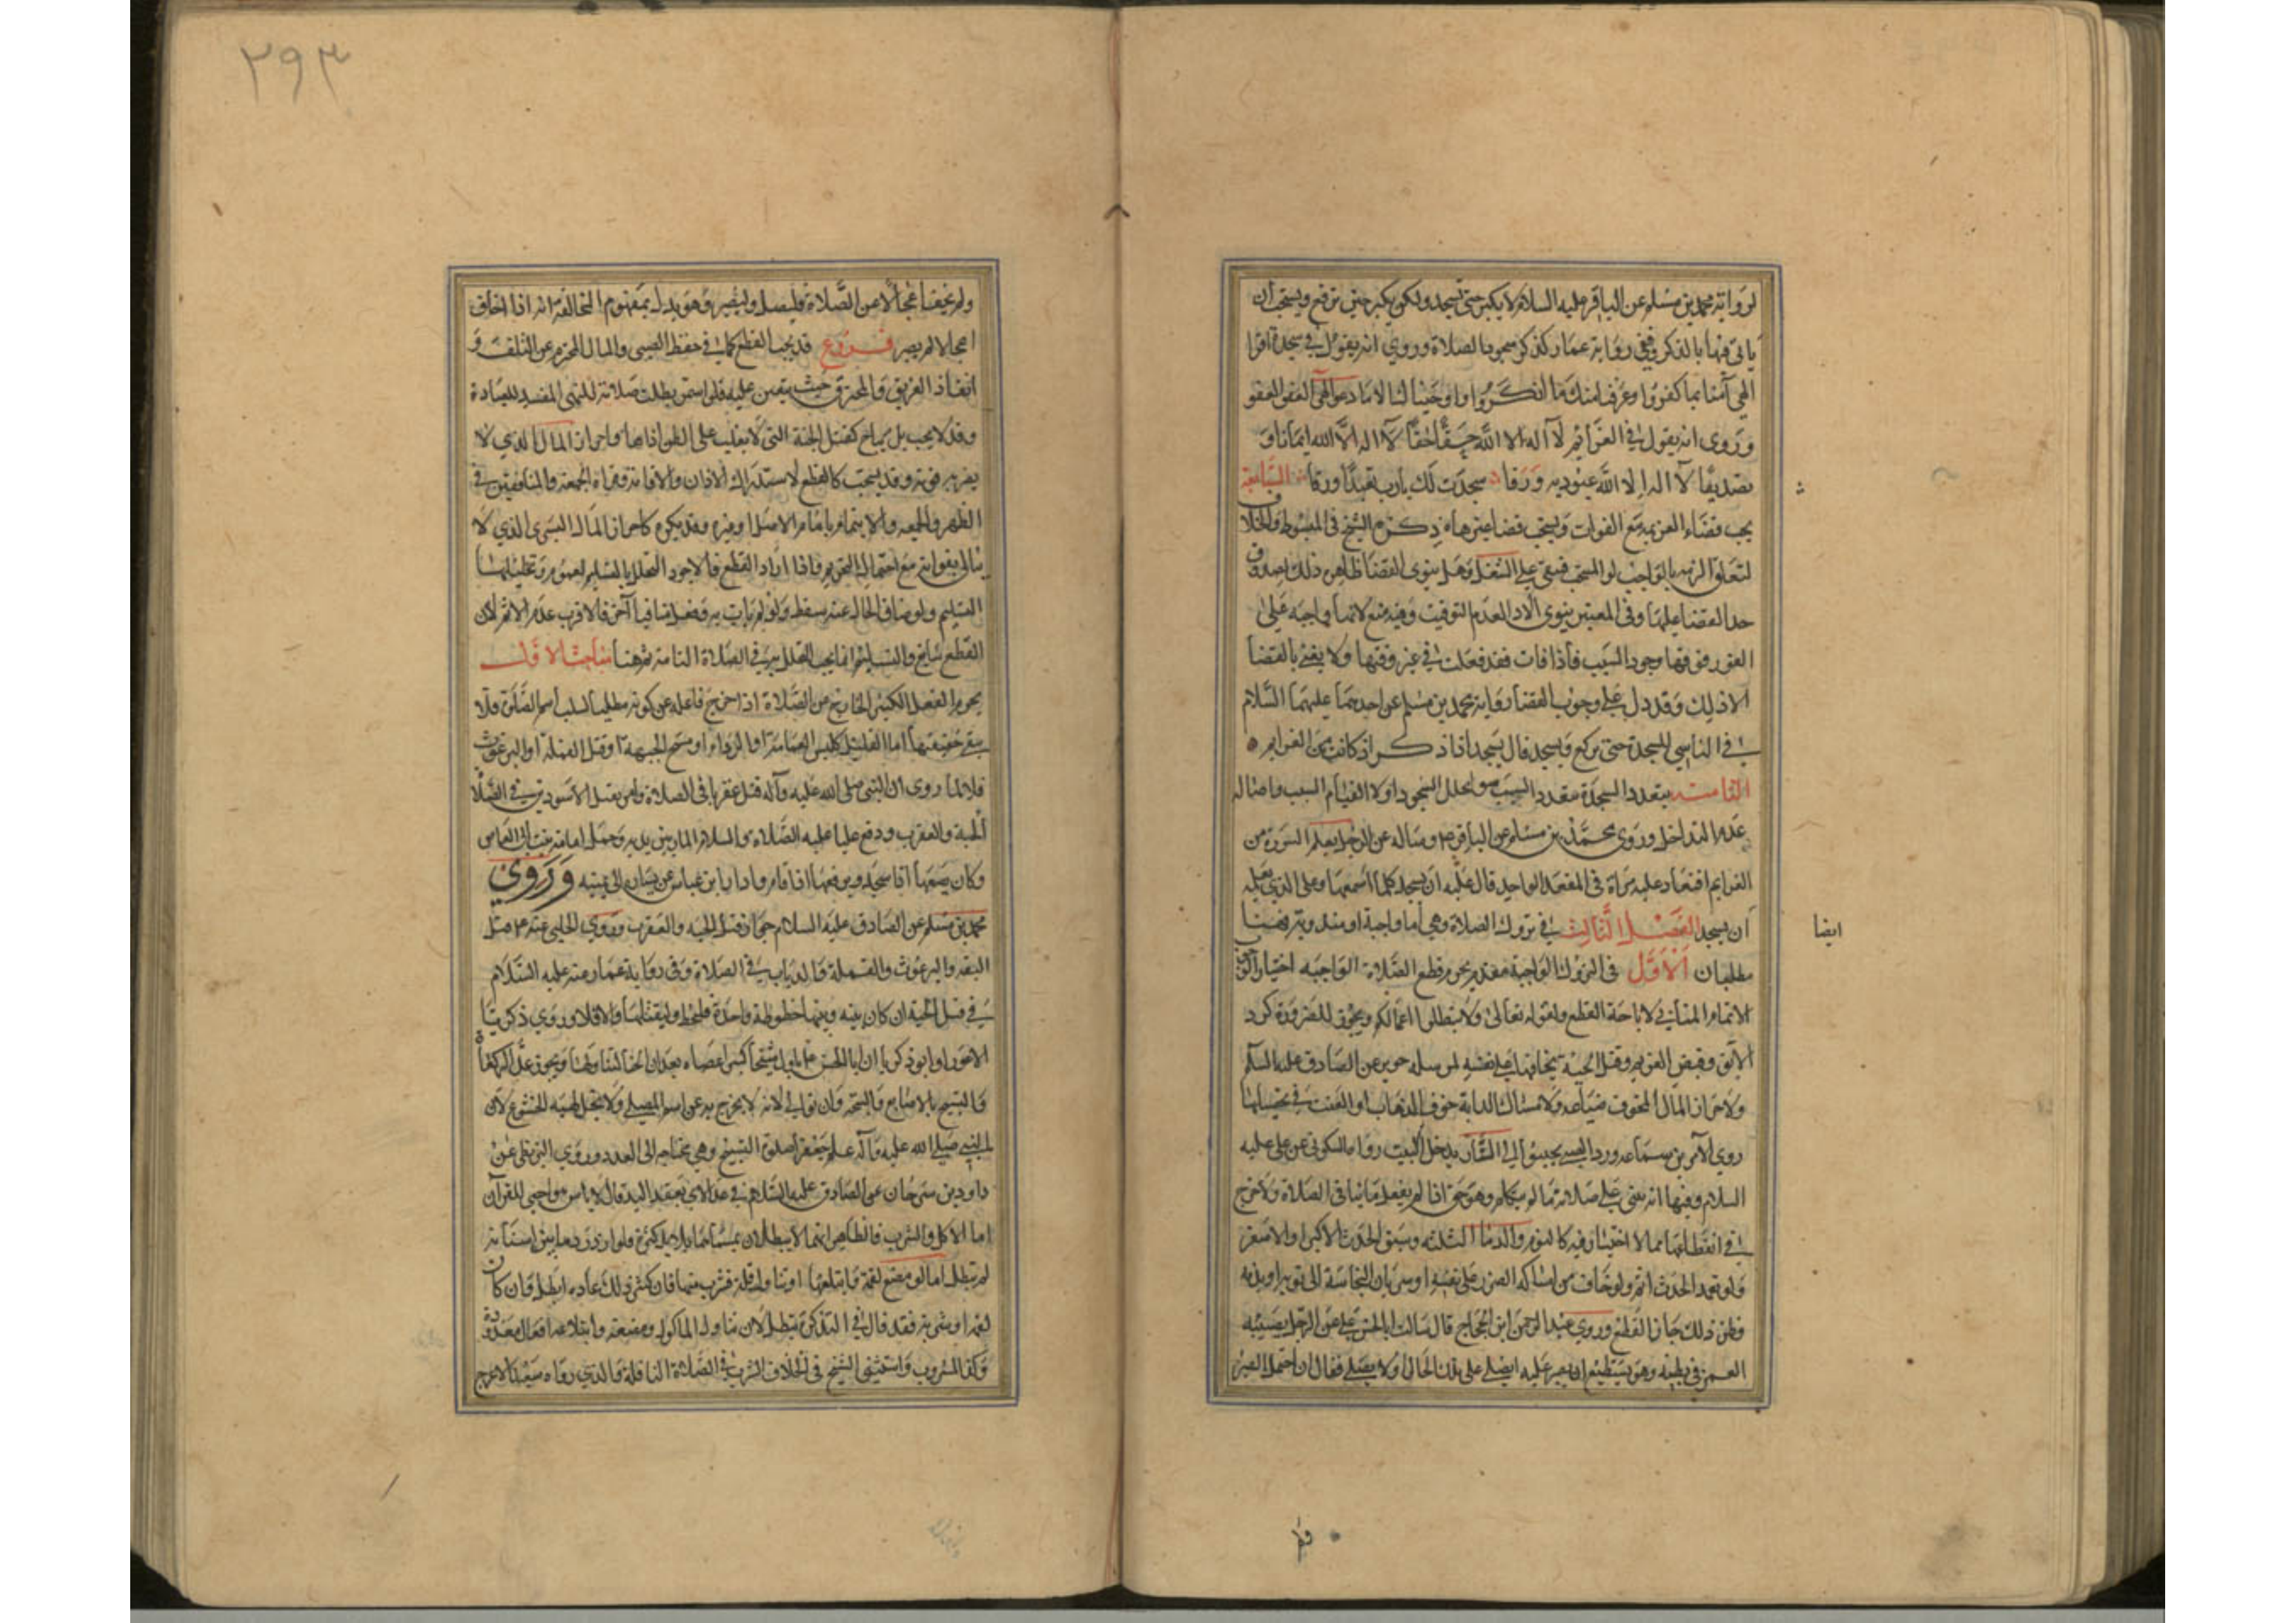 لرواية محمد بن مسلم عن الباقر عليه السلام لا يكبر حتى تسجد ولكن يكبر حين ترفع ويستحب ان
ياتى فيها بالذكر وفى رواية عمار كذكر سجود الصلاة وروي انه يقول في سجدة اقرا
الهي آمنا بما كفروا وعرفنا منك ما انكروا واجبناك الى ما دعوا الهي العفو العفو
وروى انه يقول في العزائم لا اله الا الله حقا حقا لا اله الا الله ايمانا و
تصديقا لا اله الا الله عبودية ورقا سجدت لك يارب تعبدا ورقا السابعة
يجب قضاء العزيمه مع الفوات ويستحب قضا غيرها ذكره الشيخ فى المبسوط والخلاف
لتعلق الذمه بالواجب او المستحب فتبقى على الشغل وهل ينوى القضا ظاهره ذلك لصدق
حد القضا عليها وفى المعتبر ينوى الادا لعدم التوقيت وفيه منع لانها واجبه على
الفور فوقتها وجود السبب فاذا فات فقد فعلت في غير وقتها ولا يعنى بالقضا
الا ذلك وقد دل على وجوب القضا رواية محمد بن مسلم عن احدهما عليهما السلام
في الناسي للسجدة حتى يركع ويسجد قال يسجد اذا ذكر اذ كانت من العزايم
الثامنة يتعدد السجدة بتعدد السبب سوا تخلل السجود او لا لقيام السبب واصالة
عدم التداخل وروى محمد بن مسلم عن الباقر ع وساله عن الرجل يعلم السورة من
العزايم فتعاد عليه مرارا فى المقعد الواحد قال عليه ان يسجد كلما سمعها وعلى الذي يعلمه
ايضا
ان يسجد الفصل الثالث في تروك الصلاة وهي اما واجبة او مندوبة فهنا
مطلبان الاول فى التروك الواجبة مقدمة يحرم قطع الصلاة الواجبه اختيارا
الاتمام المنافي لاباحة القطع ولقوله تعالى ولا تبطلوا اعمالكم ويجوز للضرورة كرد
الابق وقبض الغريم وقتل الحية يخافها على نفسه لمرسلة حريز عن الصادق عليه السلم
ولاحراز المال المخوف ضياعه ولامساك الدابة خوف الذهاب او العنت في تحصيلها
السلام وفيها انه يبنى على صلاته ما لم يتكلم وهو حق اذا لم يفعل ما ينافى الصلاة
في انقطاعها مما لا اختيار فيه كالنوم والدما الثلثه وسبق الحدث الاكبر او الاصغر
ولو تعمد الحدث اثم ولو خاف من امساكه الضرر على نفسه او سريان النجاسة الى ثوبه او بدنه
فظن ذلك جاز القطع وروى عبد الرحمن ابن الحجاج قال سالت ابا الحسن ع عن الرجل يصيبه
الغمز فى بطنه وهو يستطيع ان يصبر عليه ايصلى على تلك الحال او لا يصلى فقال ان احتمل الصبر
٢٩٣
ولم يخف اعجالا عن الصلاة فليصل وليصبر وهو يدل بمفهوم المخالفة انه اذا خاف
اعجالا لم يصبر فروع قد يجب القطع كما في حفظ الصبى والمال المحترم عن التلف و
انقاذ الغريق والمحترق حيث يتعين عليه فلو استمر بطلت صلاته للنهى المفسد للعبادة
وقد لا يجب بل يباح كقتل الحية التى لا يغلب على الظن اذاها واحراز المال الذي لا
يضر به فوته وقد يستحب كالقطع لاستدراك الاذان والاقامة وقراة الجمعة والمنافقين في
الظهر والجمعه والايتمام بامام الاصل او غيره وقد يكره كاحراز المال اليسير الذي لا
يبالى بفواته مع احتمال التحريم فاذا اراد القطع فالاجود التحلل بالتسليم لعموم وتحليلها
التسليم ولو ضاق الحال عنه سقط ولو لم يات به وفعل منافيا آخر فالاقرب عدم الاثم لان
القطع سايغ والتسليم انما يجب التحلل به في الصلاة التامة ثم هنا مباحث الاول
يحرم الفعل الكثير الخارج من الصلاة اذا خرج فاعله عن كونه مصليا لسلب اسم الصلوة فلا
يبقى حقيقتها اما القليل كلبس العمامة او الرداء او مسح الجبهة او قتل القملة او البرغوث
فلا لما روى ان النبى صلى الله عليه وآله قتل عقربا فى الصلاة وامر بقتل الاسودين في الصلاة
الحية والعقرب ودفع عليه الصلاة والسلام المار بين يديه وحمل امامة بنت ابى العاص
وكان يضعها اذا سجد ويرفعها اذا قام وادار ابن عباس عن يساره الى يمينه وروى
محمد بن مسلم عن الصادق عليه السلام جواز قتل الحيه والعقرب وروى الحلبى عنه ع قتل
البقه والبرغوث والقملة والذباب في الصلاة وفى رواية عمار عنه عليه السلام
في قتل الحية ان كان بينه وبينها خطوة واحدة فليخط وليقتلها والا فلا وروى زكريا
والتسبيح بالاصابع والسبحه وان توالى لانه لا يخرج به عن اسم المصلى
النبى صلى الله عليه وآله علم جعفرا صلوة التسبيح وهى محتاجه الى العدد وروى البزنطى عن
داود بن سرحان عن الصادق عليه السلام في عد الاى بعقد اليد قال لا باس هو احصى للقرآن
اما الاكل والشرب فالظاهر انهما لا يبطلان بمسماهما بل بالكثرة فلو ازدرد ما بين اسنانه
لم تبطل اما لو مضغ لقمة وابتلعها او تناول قلة فشرب منها فان كثر ذلك عادة ابطل وان كان
لقمة او شربة فقد قال في التذكرة يبطل لان تناول الماكول ومضغه وابتلاعه افعال معدودة
وكذا المشروب واستثنى الشيخ فى الخلاف الشرب في الصلاة النافلة والذى رواه سعيد الاعرج